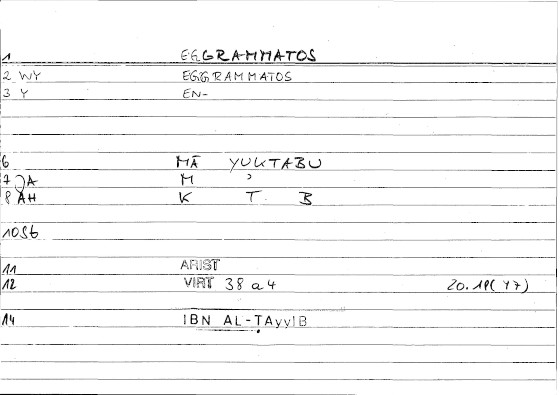 1 EGGRAMMATOS
2 WY EGGRAMMATOS
3 Y EN-
6 MĀ YUKTABU
7 JA M ʾ
8 AH K T B
10 S6
11 ARIST
12 VIRT 38 a 4 20.18( 47)
14 IBN AL-ṬAyyIB